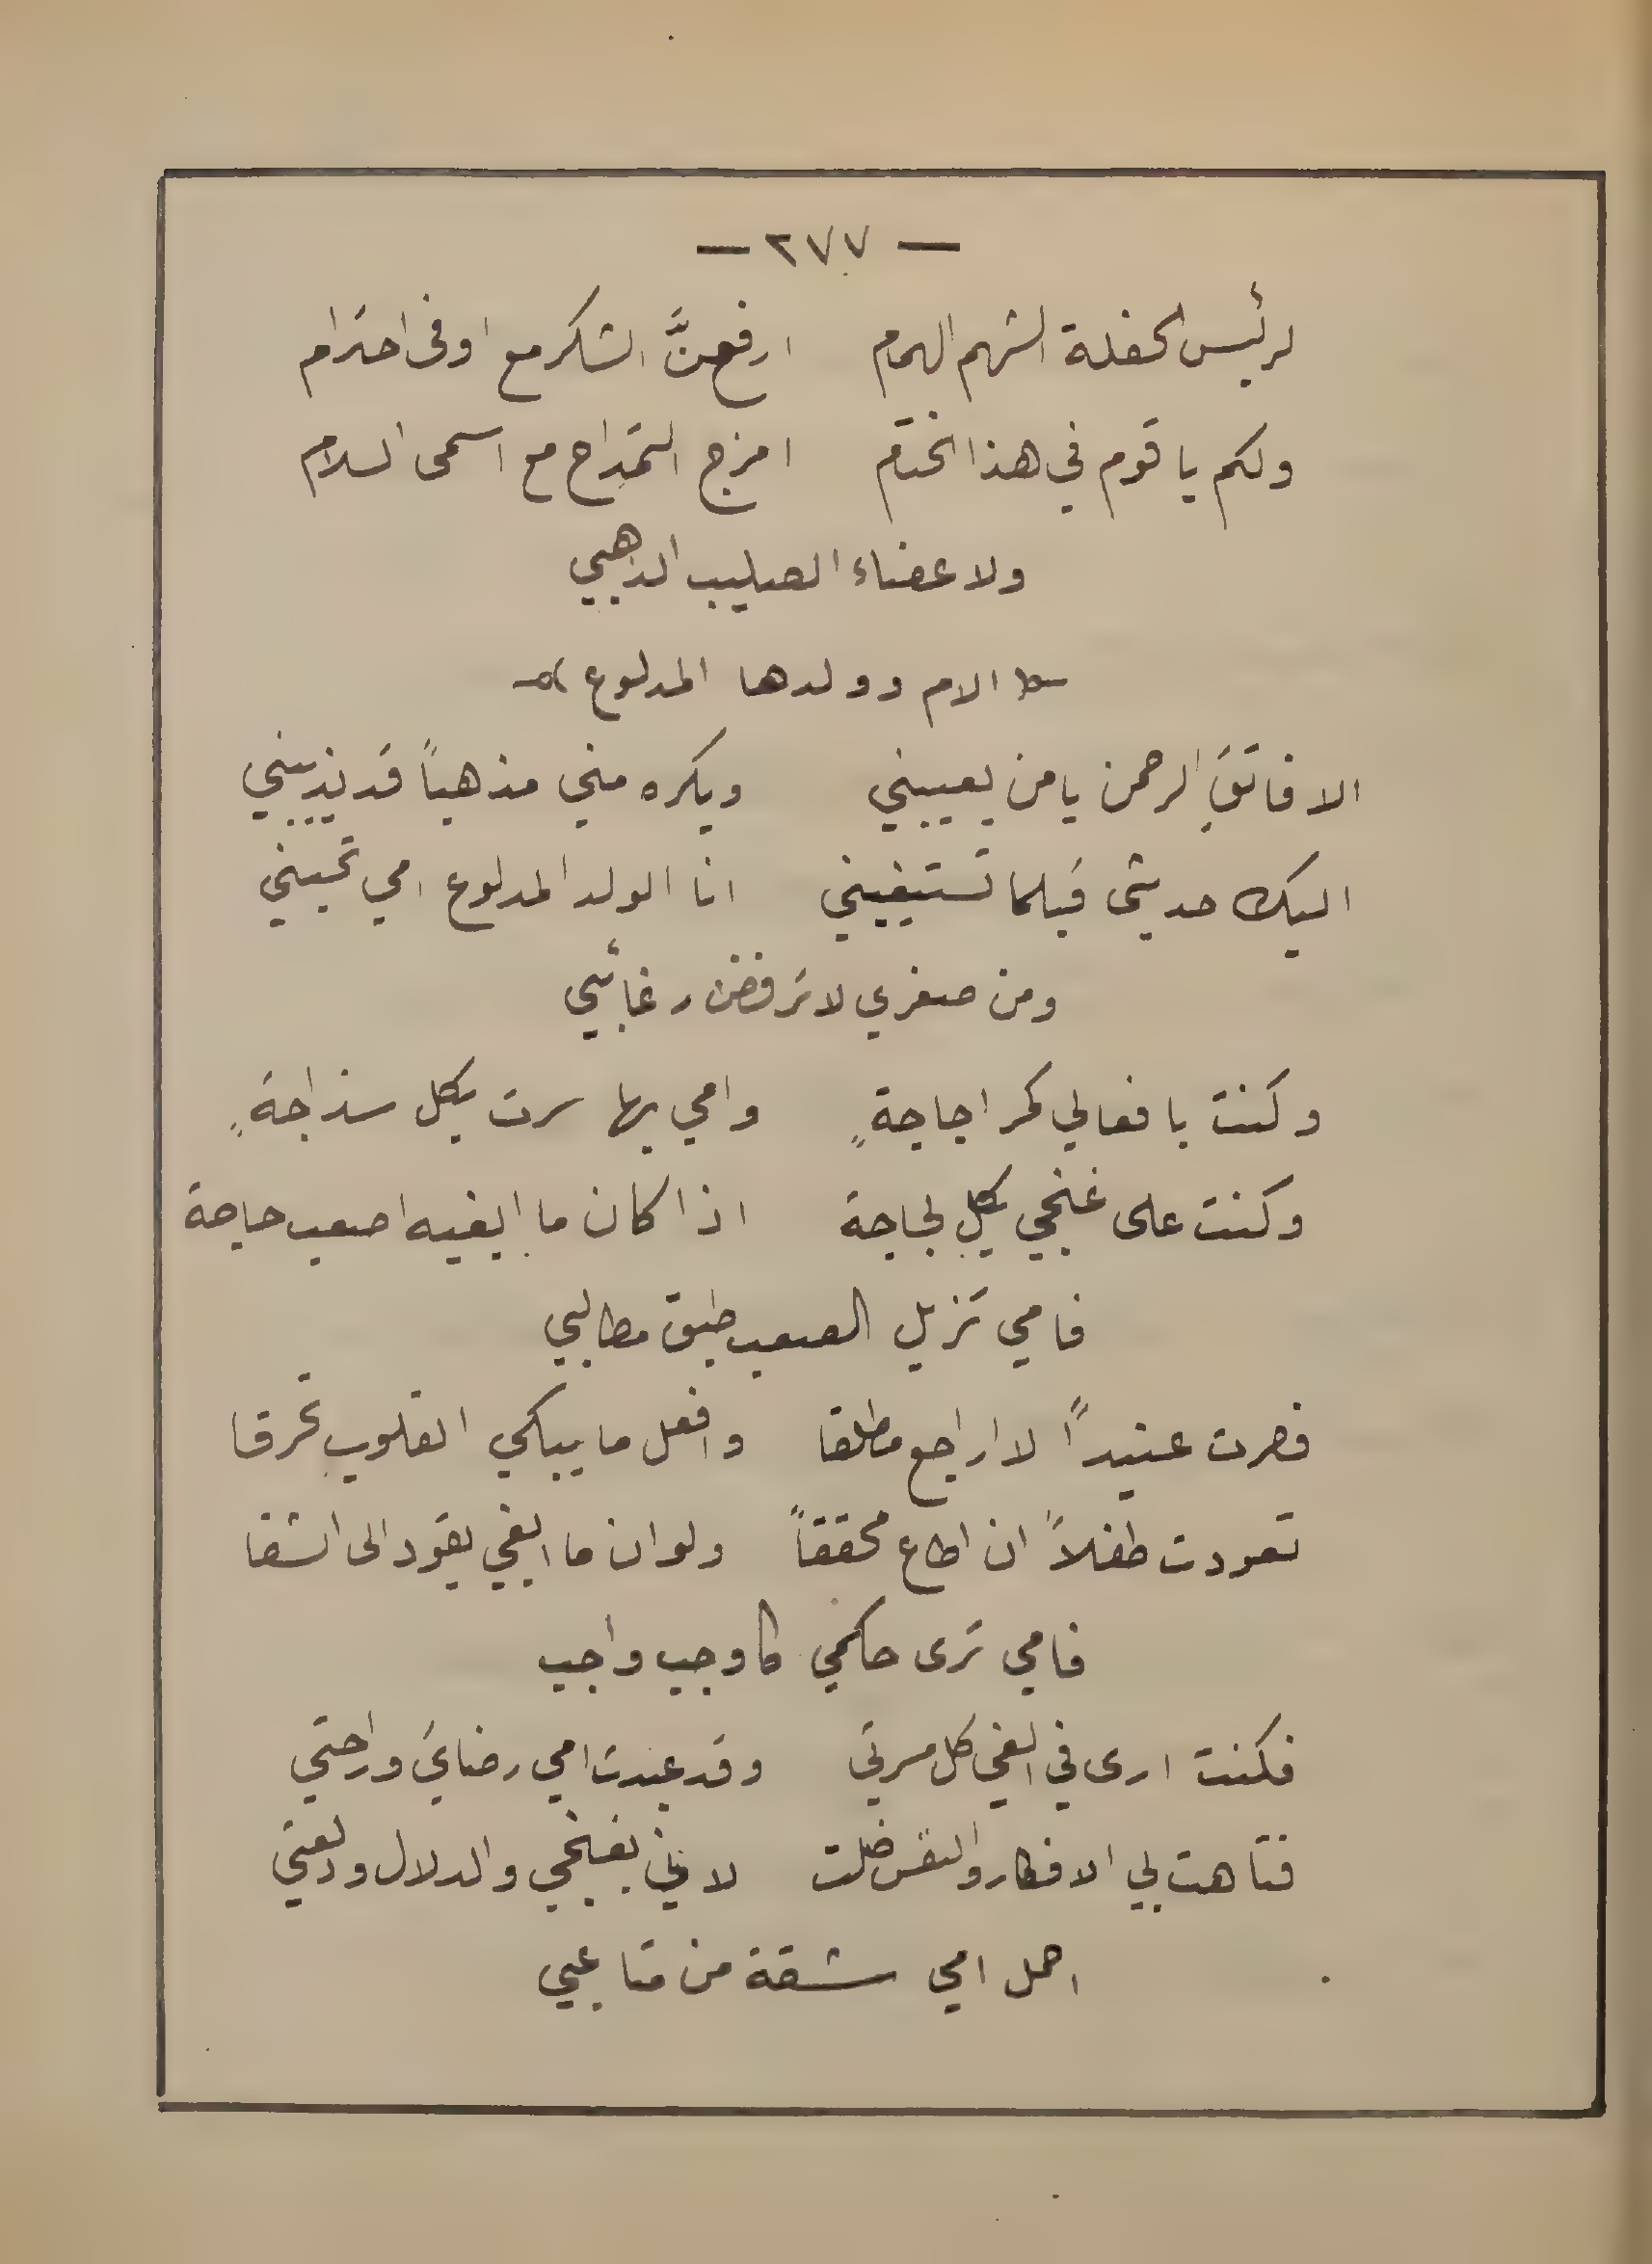 — ٢٧٧ —
لرئيس الحفلة الشهم الهمام ارفعنَّ الشكر مع اوفى احترام
ولكم يا قوم في هذا الختام امزج التمداح مع اسمى السلام
ولاعضاء الصليب الذهبي
الام وولدها المدلوع
الا فاتقِ الرحمن يا من يعيبني ويكره مني مذهباً قد يذيبني
اليك حديثي قبلما تستغيبني انا الولد المدلوع امي تحبني
ومن صغري لا ترفضن رغائبي
وكنت بافعالي كمر اجاجةٍ وامي بها سرت بكل سذاجةٍ
وكنت على غنجي بكل لجاجة اذا كان ما ابغيه اصعب حاجة
فامي تزيل الصعب طبق مطالبي
فصرت عنيداً لا اراجع مطلقا وافعل ما يبكي القلوب تحرقا
تعودت طفلاً ان اطاع محققاً ولو ان ما ابغي يقود الى الشقا
فامي ترى حكمي كاوجب واجب
فكنت ارى في الغي كل مسرتي وقد عبدت امي رضايَ وراحتي
فتاهت بي الافكار والنفس ضلت لاني بغنجي والدلال ودلعتي
احمل امي شقة من متاعبي